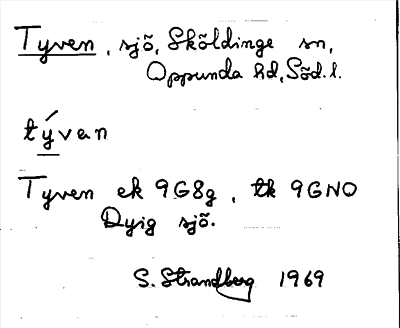 Tyven, sjö, Sköldinge sn,
Oppunda hd, Söd. l.
tývan
Tyven ek 9G8g, tk 9GNO
Dyig sjö.
S. Strandberg 1969